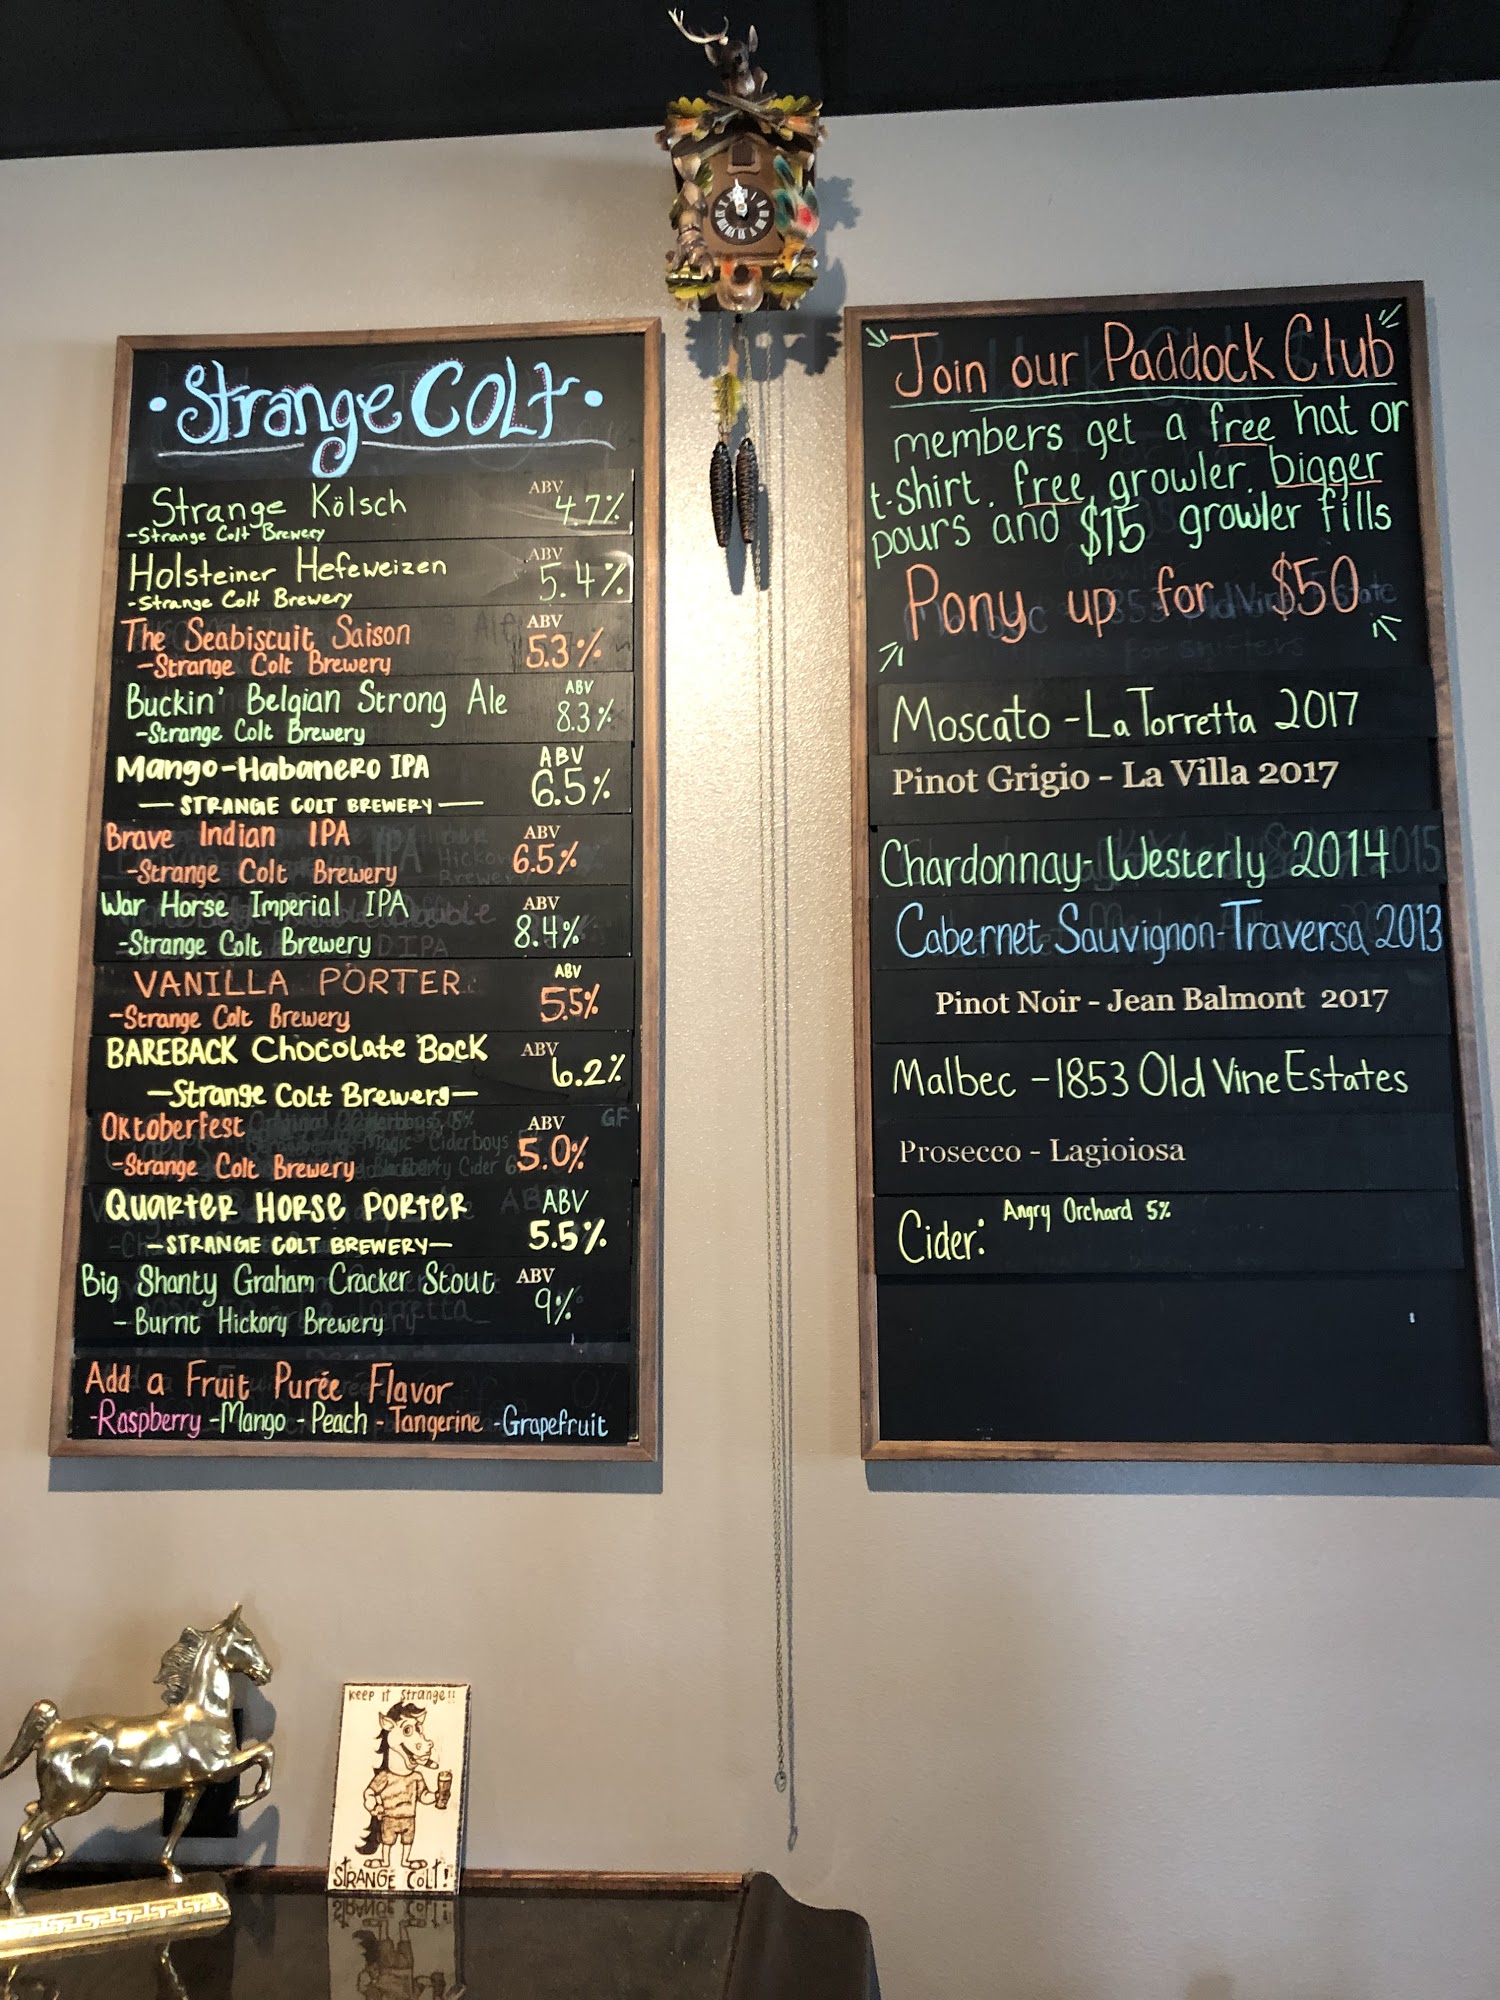 · Strange Colt ·
Strange Kölsch ABV 4.7%
-Strange Colt Brewery
Holsteiner Hefeweizen ABV 5.4%
-Strange Colt Brewery
The Seabiscuit Saison ABV 5.3%
-Strange Colt Brewery
Buckin' Belgian Strong Ale ABV 8.3%
-Strange Colt Brewery
Mango-Habanero IPA ABV 6.5%
— STRANGE COLT BREWERY —
Brave Indian IPA ABV 6.5%
-Strange Colt Brewery
War Horse Imperial IPA ABV 8.4%
-Strange Colt Brewery
VANILLA PORTER ABV 5.5%
-Strange Colt Brewery
BAREBACK Chocolate Bock ABV 6.2%
—Strange Colt Brewery—
Oktoberfest ABV 5.0%
-Strange Colt Brewery
QUARTER HORSE PORTER ABV 5.5%
—STRANGE COLT BREWERY—
Big Shanty Graham Cracker Stout ABV 9%
- Burnt Hickory Brewery
Add a Fruit Purée Flavor
-Raspberry -Mango -Peach -Tangerine -Grapefruit
Join our Paddock Club
members get a free hat or
t-shirt, free growler, bigger
pours and $15 growler fills
Pony up for $50
Moscato - La Torretta 2017
Pinot Grigio - La Villa 2017
Chardonnay- Westerly 2014
Cabernet Sauvignon-Traversa 2013
Pinot Noir - Jean Balmont 2017
Malbec - 1853 Old Vine Estates
Prosecco - Lagioiosa
Cider: Angry Orchard 5%
Keep it Strange!!
STRANGE COLT!